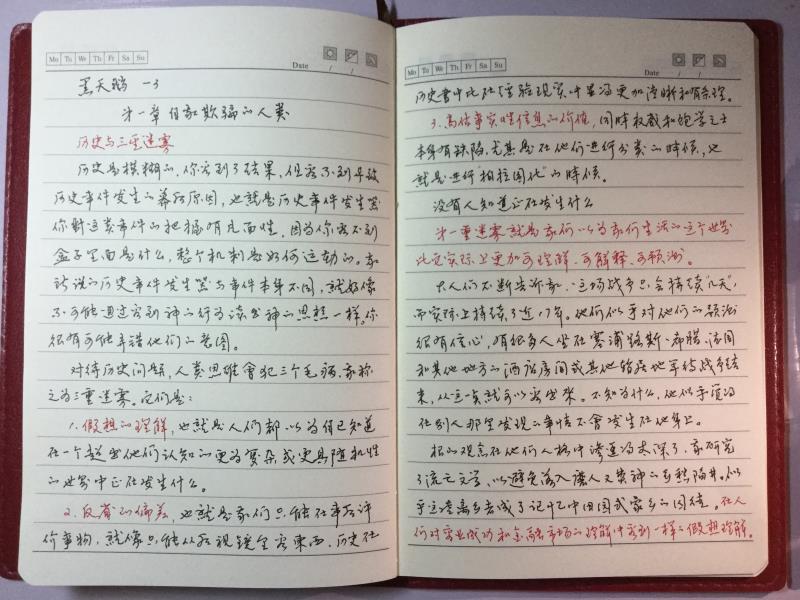 Mo Tu We Th Fr Sa Su
Date / /
黑天鹅 -3
第一章 自我欺骗的人类
历史与三重迷雾
历史是模糊的,你看到了结果,但看不到导致
历史事件发生的幕后原因,也就是历史事件发生器
你对这类事件的把握有片面性。因为你看不到
盒子里面是什么,整个机制是如何运动的。我
所说的历史事件发生器与事件本身不同,就好像
不可能通过看到神的行为读出神的思想一样。你
很有可能弄错他们的意图。
对待历史问题,人类思维會犯三个毛病,我称
之为三重迷雾。它们是:
1.假想的理解,也就是人们都以为自己知道
在一个超出他们认知的更为复杂或更具随机性
的世界中正在发生什么。
2.反省的偏差,也就是我们只能在事后评
价事物,就像只能从后视镜里看东西,历史在
Mo Tu We Th Fr Sa Su
Date / /
历史书中比在经验现实中显得更加清晰和有条理。
3.高估事实性信息的价值,同時权威和饱学之士
本身有缺陷,尤其是在他们进行分类的時候,也
就是进行“柏拉图化”的時候。
没有人知道正在发生什么
第一重迷雾就是我们以为我们生活的这个世界
比它实际上更加可理解、可解释、可预测。
大人们不断告诉我,这场战争只会持续“几天”,
而实际上持续了近17年。他们似乎对他们的预测
很有信心,有很多人坐在塞浦路斯、希腊、法国
和其他地方的酒店房间或其他临時地等待战争结
束,从这点就可以看出来。不知为什么,他们似乎觉得
在别人那里发现的事情不會发生在他们身上。
柏的观点在他们人格中渗透得太深了,我研究
了流亡文学,以避免落入讓人又費神的
乎这背离乡者成了记忆中田园式家乡的囚徒。在人
们对商业成功和金融市场的理解中看到一样的假想理解。